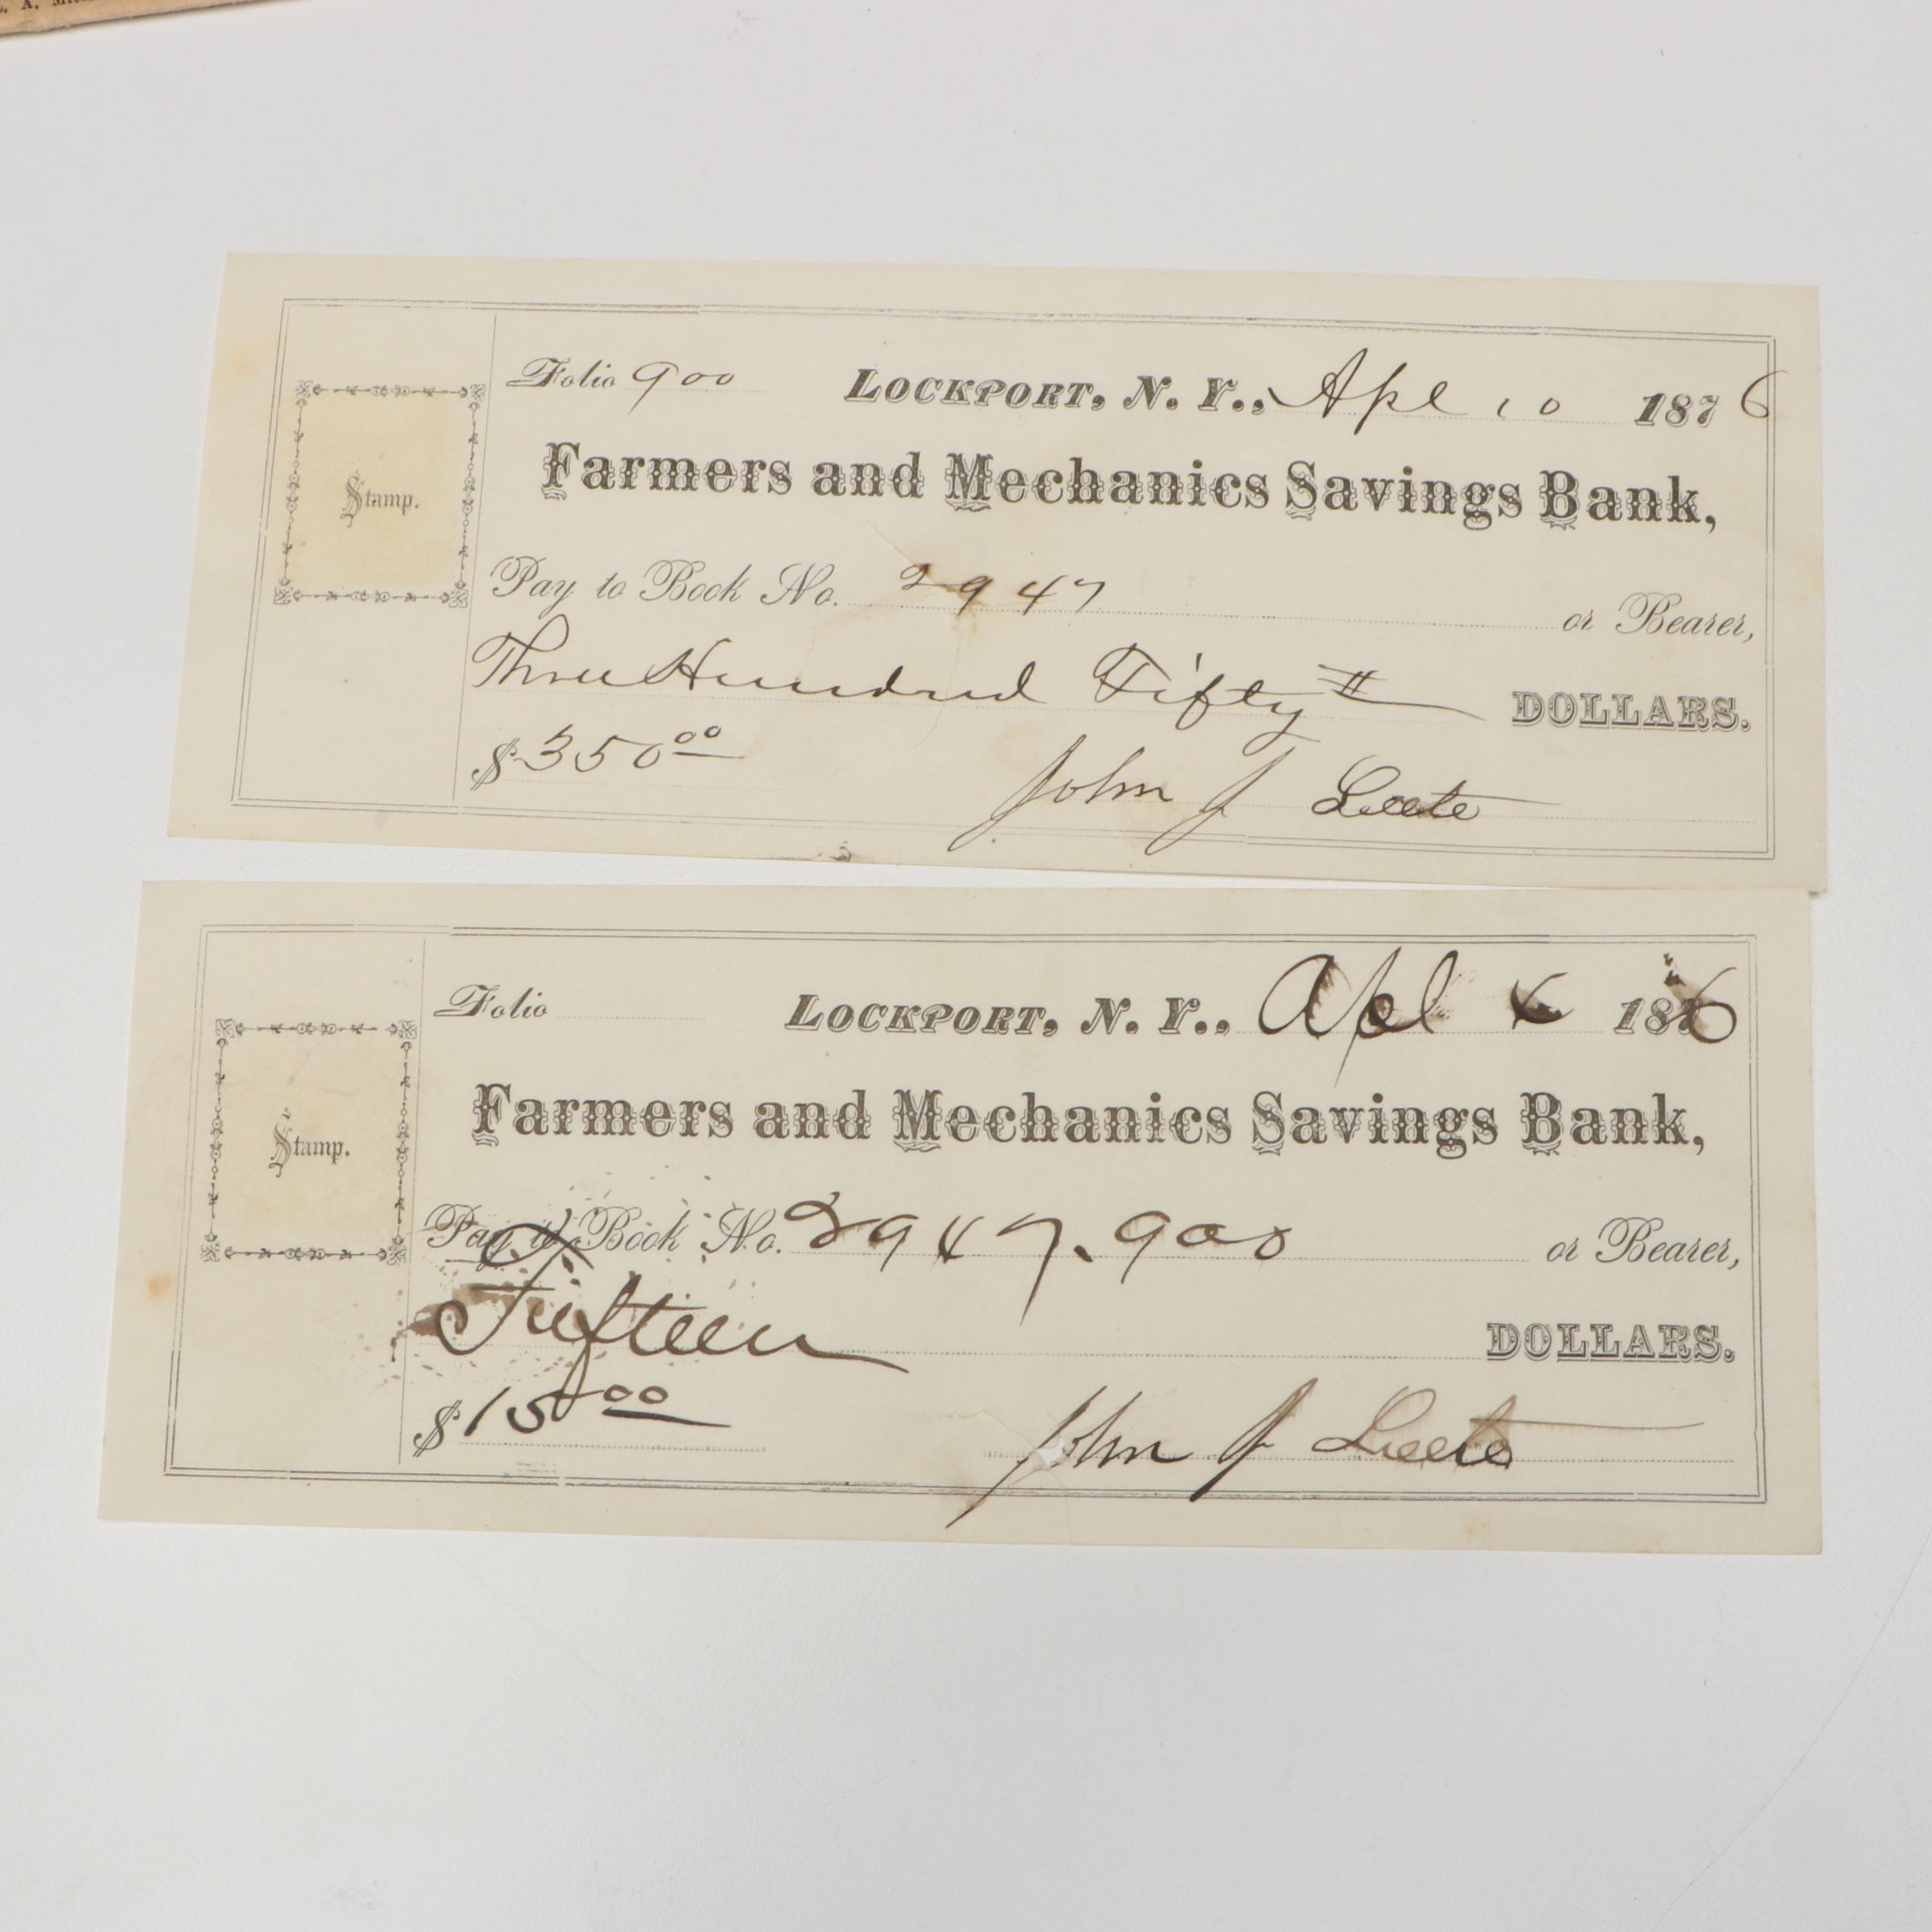 Folio 900 LOCKPORT, N. Y., Apl 10 1876
Farmers and Mechanics Savings Bank,
Stamp.
Pay to Book No. 2947 or Bearer,
Three Hundred Fifty DOLLARS.
$350 00
John J Leete
Folio LOCKPORT, N. Y., Apl 4 1876
Farmers and Mechanics Savings Bank,
Stamp.
Pay to Book No. 2947. 900 or Bearer,
Fifteen DOLLARS.
$15 00
John J Leete